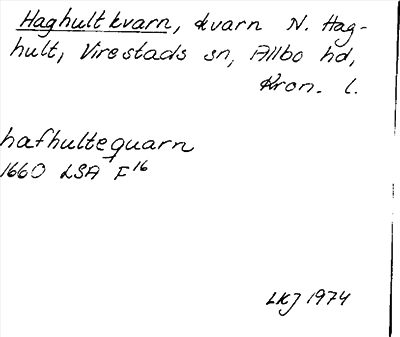 Haghult kvarn, kvarn N. Hag-
hult, Virestads sn, Allbo hd,
Kron. l.
hafhultequarn
1660 LSA F16
LKJ 1974